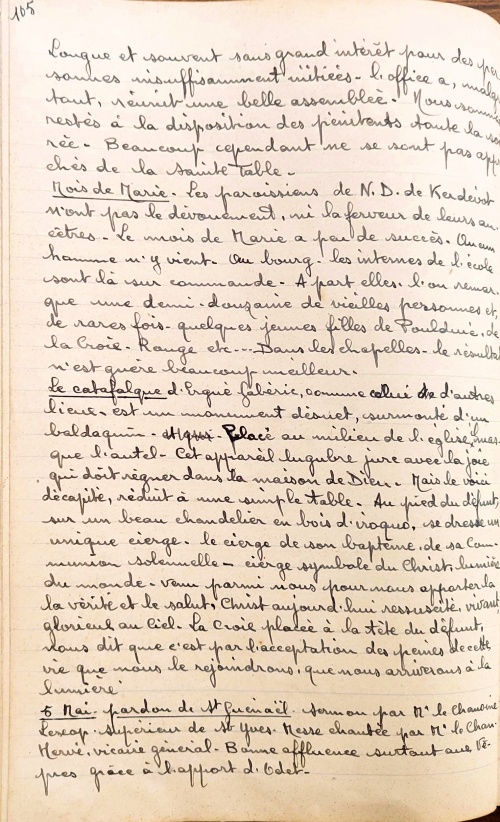 105
Longue et souvent sans grand intérêt pour des per
sonnes insuffisamment initiées - l'office a, malgré
tout, réunit une belle assemblée. Nous sommes
restés à la disposition des pénitents toute la soi
rée - Beaucoup cependant ne se sont pas appro
chés de la Sainte Table -
Mois de Marie - Les paroissiens de N.D. de Kerdévot
n'ont pas le dévouement, ni la ferveur de leurs an-
cêtres - Le mois de Marie a peu de succès. Aucun
homme n'y vient. Au bourg - les internes de l'école
sont là sur commande - A part elles - l'on remar-
que une demi-douzaine de vieilles personnes et,
de rares fois - quelques jeunes filles de Poulduic, de
la Croix-Rouge etc--- Dans les chapelles - le résultat
n'est guère beaucoup meilleur.
Le catafalque d'Ergué Gabéric, comme celui de d'autres
lieux - est un monument désuet, surmonté d'un
baldaquin - Placé au milieu de l'église, mas-
que l'autel - Cet appareil lugubre jure avec la joie
qui doit régner dans la maison de Dieu - Mais le voici
décapité, réduit à une simple table - Au pied du défunt,
sur un beau chandelier en bois d'iroquo, se dresse un
unique cierge - le cierge de son baptême, de sa Com-
munion solennelle - cierge symbole du Christ, lumière
du monde - venu parmi nous pour nous apporter la
la vérité et le salut, Christ aujourd'hui ressuscité, vivant,
glorieux au Ciel - La Croix placée à la tête du défunt,
nous dit que c'est par l'acceptation des peines de cette
vie que nous le rejoindrons, que nous arriverons à la
lumière
5 Mai - pardon de St Guénaël - Sermon par Mr le Chanoine
supérieur de St Yves - Messe chantée par Mr le Chan-
Hervé, vicaire général - Bonne affluence surtout aux Vê-
pres grâce à l'apport d'Odet -